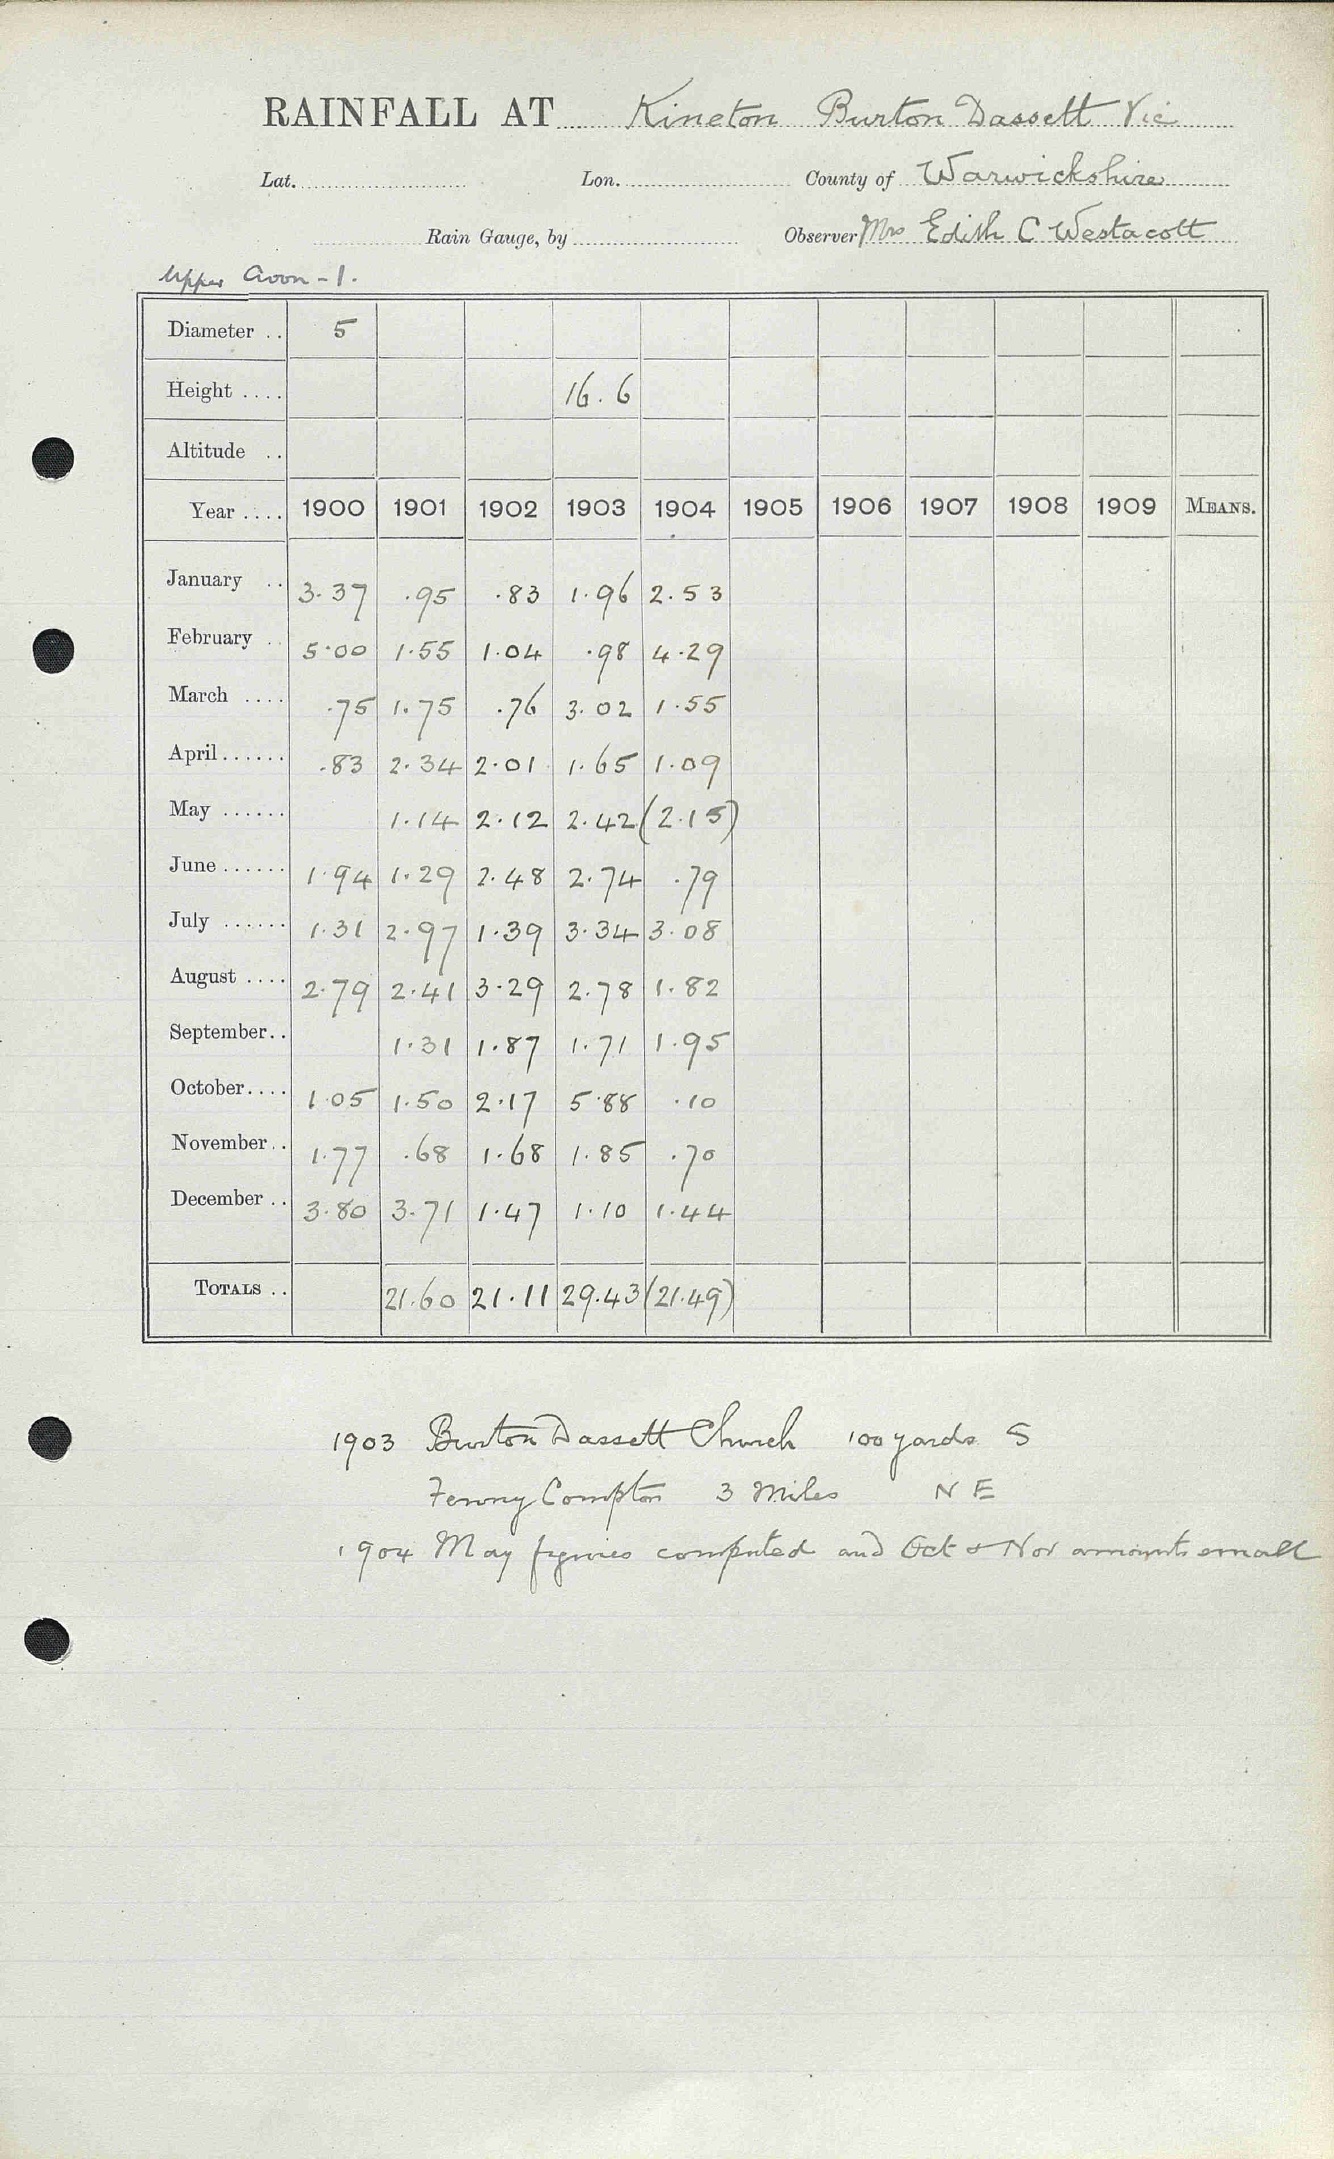 RAINFALL AT Kineton Burton Dassett Vic
Lat. Lon. County of Warwickshire
Rain Gauge, by Observer Mrs Edith C Westacott
Upper Avon - 1.
Diameter .. 5
Height .... 16.6
Altitude ..
Year .... 1900 1901 1902 1903 1904 1905 1906 1907 1908 1909 MEANS.
January .. 3.37 .95 .83 1.96 2.53
February .. 5.00 1.55 1.04 .98 4.29
March .... .75 1.75 .76 3.02 1.55
April...... .83 2.34 2.01 1.65 1.09
May ...... 1.14 2.12 2.42 (2.15)
June...... 1.94 1.29 2.48 2.74 .79
July ...... 1.31 2.97 1.39 3.34 3.08
August .... 2.79 2.41 3.29 2.78 1.82
September.. 1.31 1.87 1.71 1.95
October.... 1.05 1.50 2.17 5.88 .10
November.. 1.77 .68 1.68 1.85 .70
December .. 3.80 3.71 1.47 1.10 1.44
TOTALS .. 21.60 21.11 29.43 (21.49)
1903 Burton Dassett Church 100 yards S
Fenny Compton 3 Miles N E
1904 May figures computed and Oct & Nov amounts small